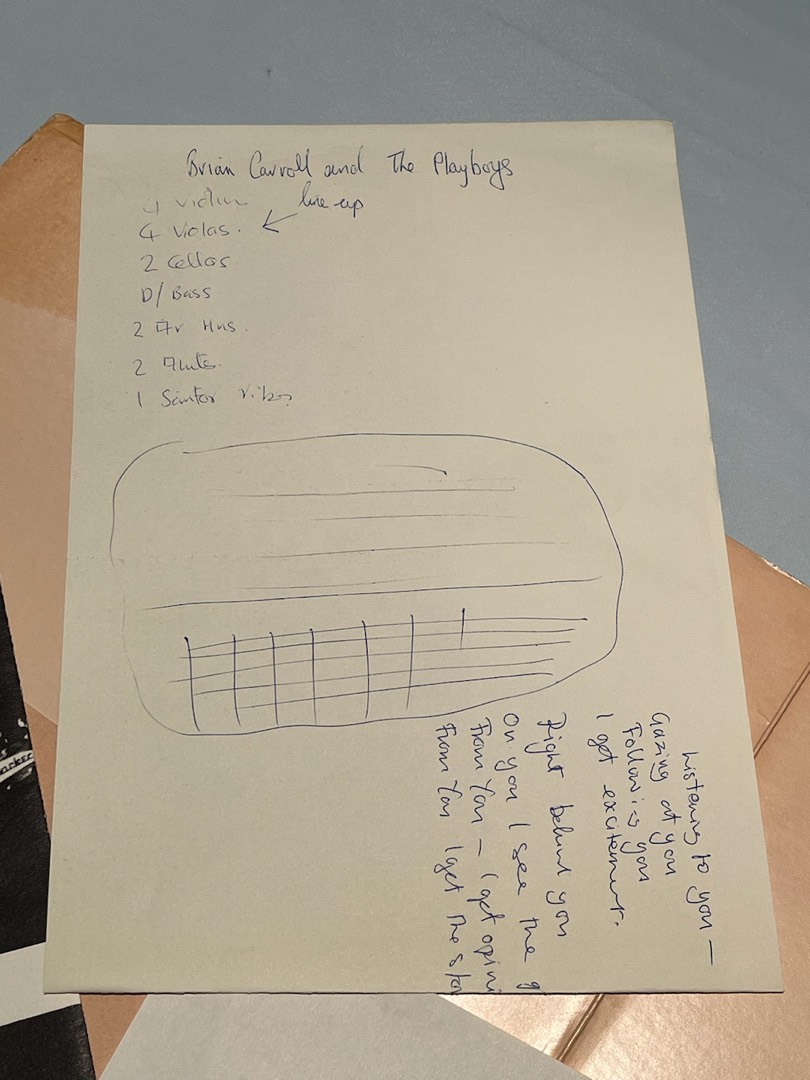 Brian Carroll and The Playboys
line up
4 Violas.
2 Cellos
D/Bass
2 Fr Hns.
2 Fluts.
1
Listening to you —
Gazing at you
Following you
I get excitement.
Right behind you
On you I see the g
From You — I get opini
From You I get The sto